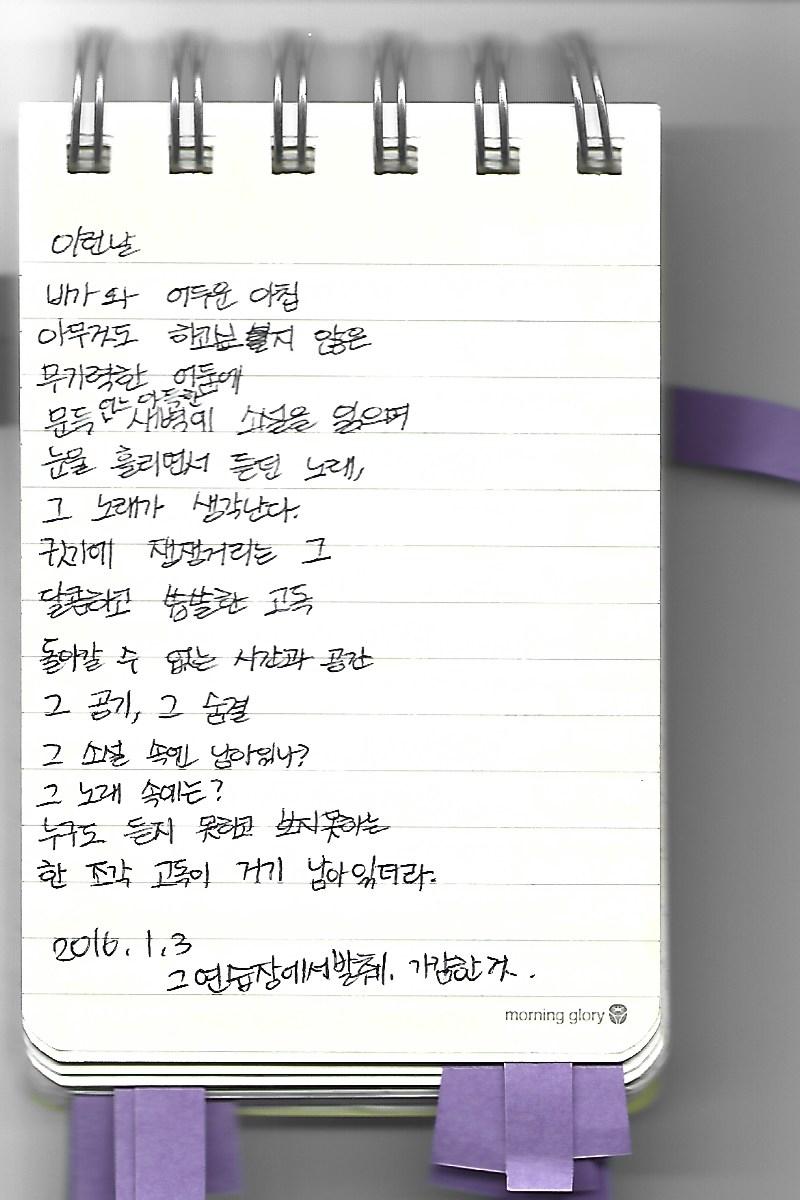 이런날
비가 와 어두운 아침
아무것도 하고싶지 않은
무기력한 어둠에
어느 아득한
문득 새벽에 소설을 읽으며
눈물 흘리면서 듣던 노래,
그 노래가 생각난다.
귓가에 잽잽거리는 그
달콤하고 씁쓸한 고독
돌아갈 수 없는 시간과 공간
그 공기, 그 숨결
그 소설 속엔 남아있나?
그 노래 속에는?
누구도 듣지 못하고 보지못하는
한 조각 고독이 거기 남아있더라.
2016.1.3
그 연습장에서 발췌. 가감한 것.
morning glory